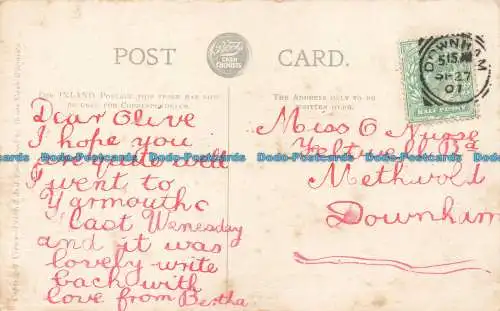 POST
Boots
CASH
CHEMISTS
CARD.
FOR INLAND POSTAGE THIS SPACE MAY NOW
BE USED FOR CORRESPONDENCE.
THE ADDRESS ONLY TO BE
WRITTEN HERE.
DOWNHAM
SP 27
07
HALF PENNY
Dear Olive
I hope you
are quite well
I went to
Yarmouth
last Wenesday
and it was
lovely write
back with
love from Bertha
Miss O Nurse
Feltwell Rd
Methwold
Downham
Dodo-Postcards Dodo-Postcards Dodo-Postcards Dodo-Postcards